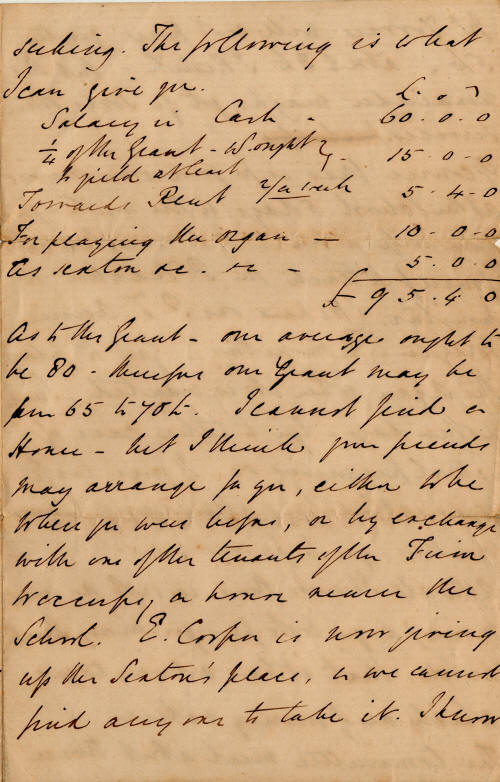 seeking. The following is what
I can give you.
£ . s . d
Salary in Cash - 60 . 0 . 0
¼ of the Grant - Wought
to yield at least } - 15 - 0 - 0
Towards Rent 2/ a week 5 . 4 . 0
For playing the organ — 10 - 0 - 0
As sexton &c. &c - 5 . 0 . 0
£ 95 . 4 . 0
As to the Grant - our average ought to
be 80 - therefore our Grant may be
from 65 to 70 £. I cannot find a
House - but I think your friends
may arrange for you, either to be
where you were before, or by exchange
with one of the tenants of the Firm
to occupy a house nearer the
School. E. Cooper is now giving
up the Sexton's place, & we cannot
find any one to take it. I know